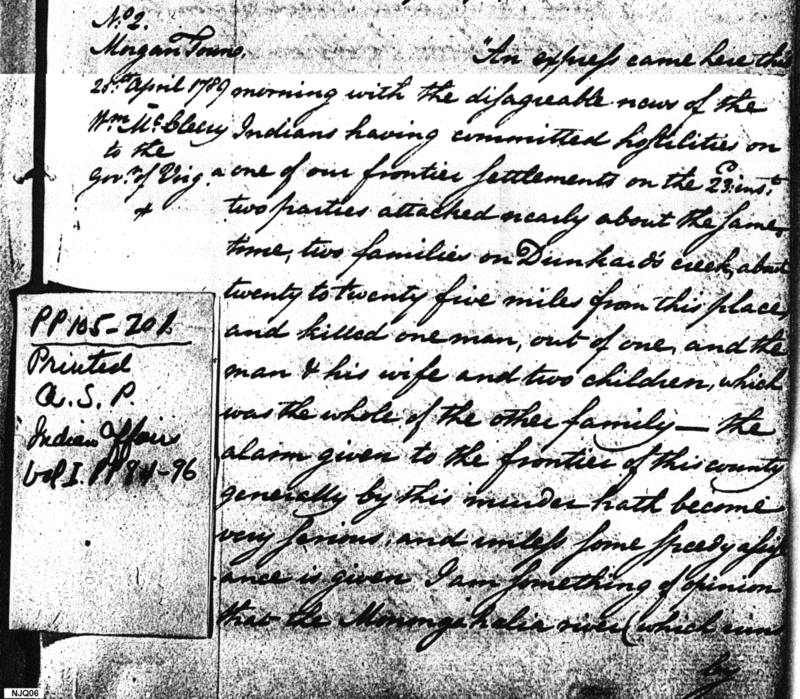 No. 2.
Morgan Town,
25th April 1789
Wm. McCleery
to the
Govr. of Virga.
&
"An express came here this
morning with the disagreable news of the
Indians having committed hostilities on
one of our frontier settlements on the 23d inst.
two parties attacked nearly about the same
time, two families on Dunkard's creek, about
twenty to twenty five miles from this place,
and killed one man, out of one, and the
man & his wife and two children, which
was the whole of the other family — the
alarm given to the frontier of this county
generally by this murder hath become
very serious, and unless some speedy assist
ance is given I am something of opinion
that the Monongahalia river (which runs
by
PP 105-201
Printed
A. S. P.
Indian Affairs
Vol I. PP 84-96
NJQ06